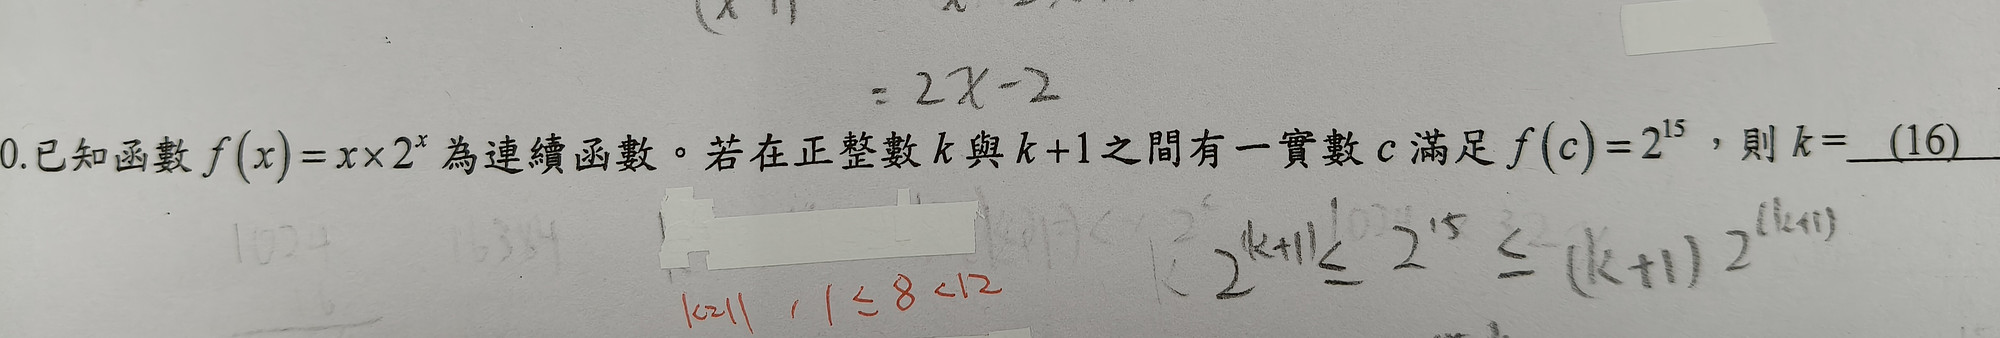 = 2x-2
0.已知函數 f(x)=x×2^x 為連續函數。若在正整數 k 與 k+1 之間有一實數 c 滿足 f(c)=2^15,則 k= (16)
1024 16384
2^(k+1) ≤ 2^15 ≤ (k+1) 2^(k+1)
k=11 , 1 ≤ 8 <12